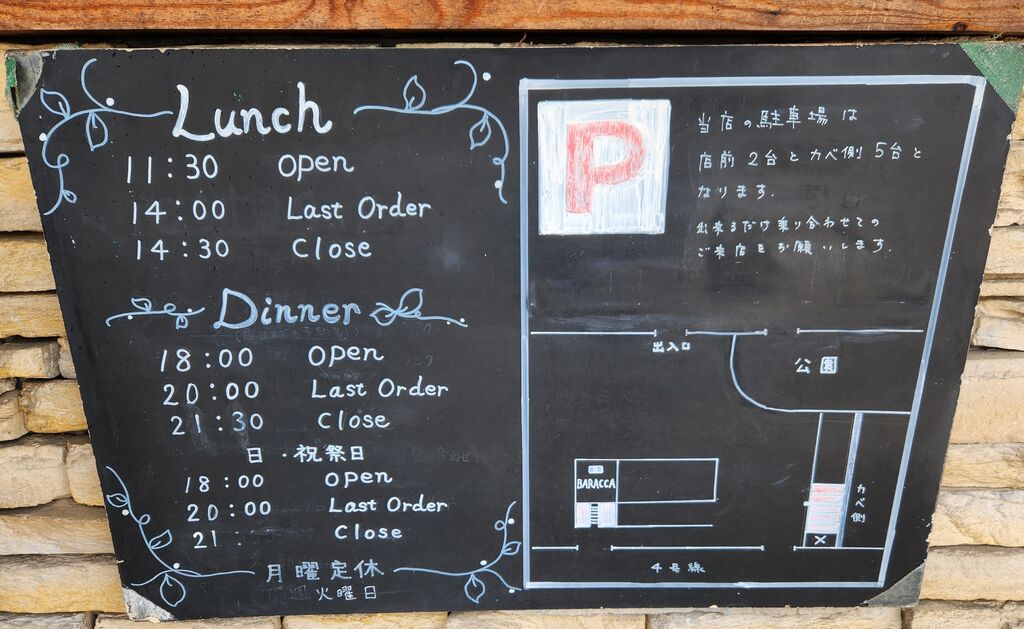 Lunch
11:30 open
14:00 Last Order
14:30 Close
Dinner
18:00 open
20:00 Last Order
21:30 Close
日・祝祭日
18:00 open
20:00 Last Order
21: Close
月曜定休
火曜日
P
当店の駐車場は
店前2台とカベ側5台と
なります.
出来るだけ乗り合わせての
ご来店をお願いします.
出入口
公園
BARACCA
カベ側
×
4号線